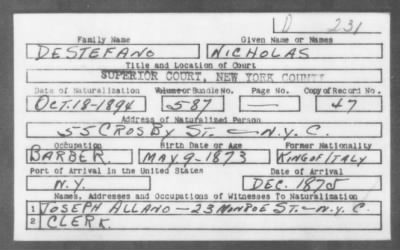 D 231
Family Name Given Name or Names
DESTEFANO NICHOLAS
Title and Location of Court
SUPERIOR COURT, NEW YORK COUNTY
Date of Naturalization Volume or Bundle No. Page No. Copy of Record No.
OCT.18-1894 587 — 47
Address of Naturalized Person
55 CROSBY ST. — N.Y.C.
Occupation Birth Date or Age Former Nationality
BARBER. MAY.9-1873 KING OF ITALY
Port of Arrival in the United States Date of Arrival
N.Y. DEC. 1875
Names, Addresses and Occupations of Witnesses To Naturalization
1 JOSEPH ALLANO — 23 MONROE ST. — N.Y.C.
2 CLERK.